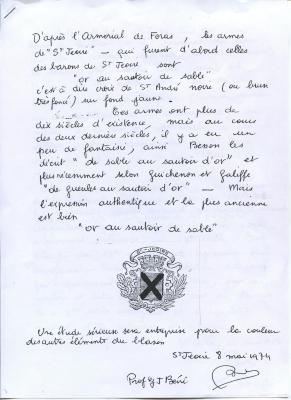 D'après l'Armorial de Foras, les armes
de "St Jeoire" - qui furent d'abord celles
des barons de St Jeoire sont
"or au sautoir de sable"
c'est à dire croix de St André noire (ou brun
très foncé) sur fond jaune.
Ces armes ont plus de
dix siècles d'existence, mais au cours
des deux derniers siècles, il y a eu un
peu de fantaisie, ainsi Besson les
décrit "de sable au sautoir d'or" et
plus récemment selon Guichenon et Galiffe
"de gueules au sautoir d'or" - Mais
l'expression authentique et la plus ancienne
est bien
"or au sautoir de sable"
ST-JEOIRE
Une étude sérieuse sera entreprise pour la couleur
des autres éléments du blason
St Jeoire 8 mai 1974
Prof J